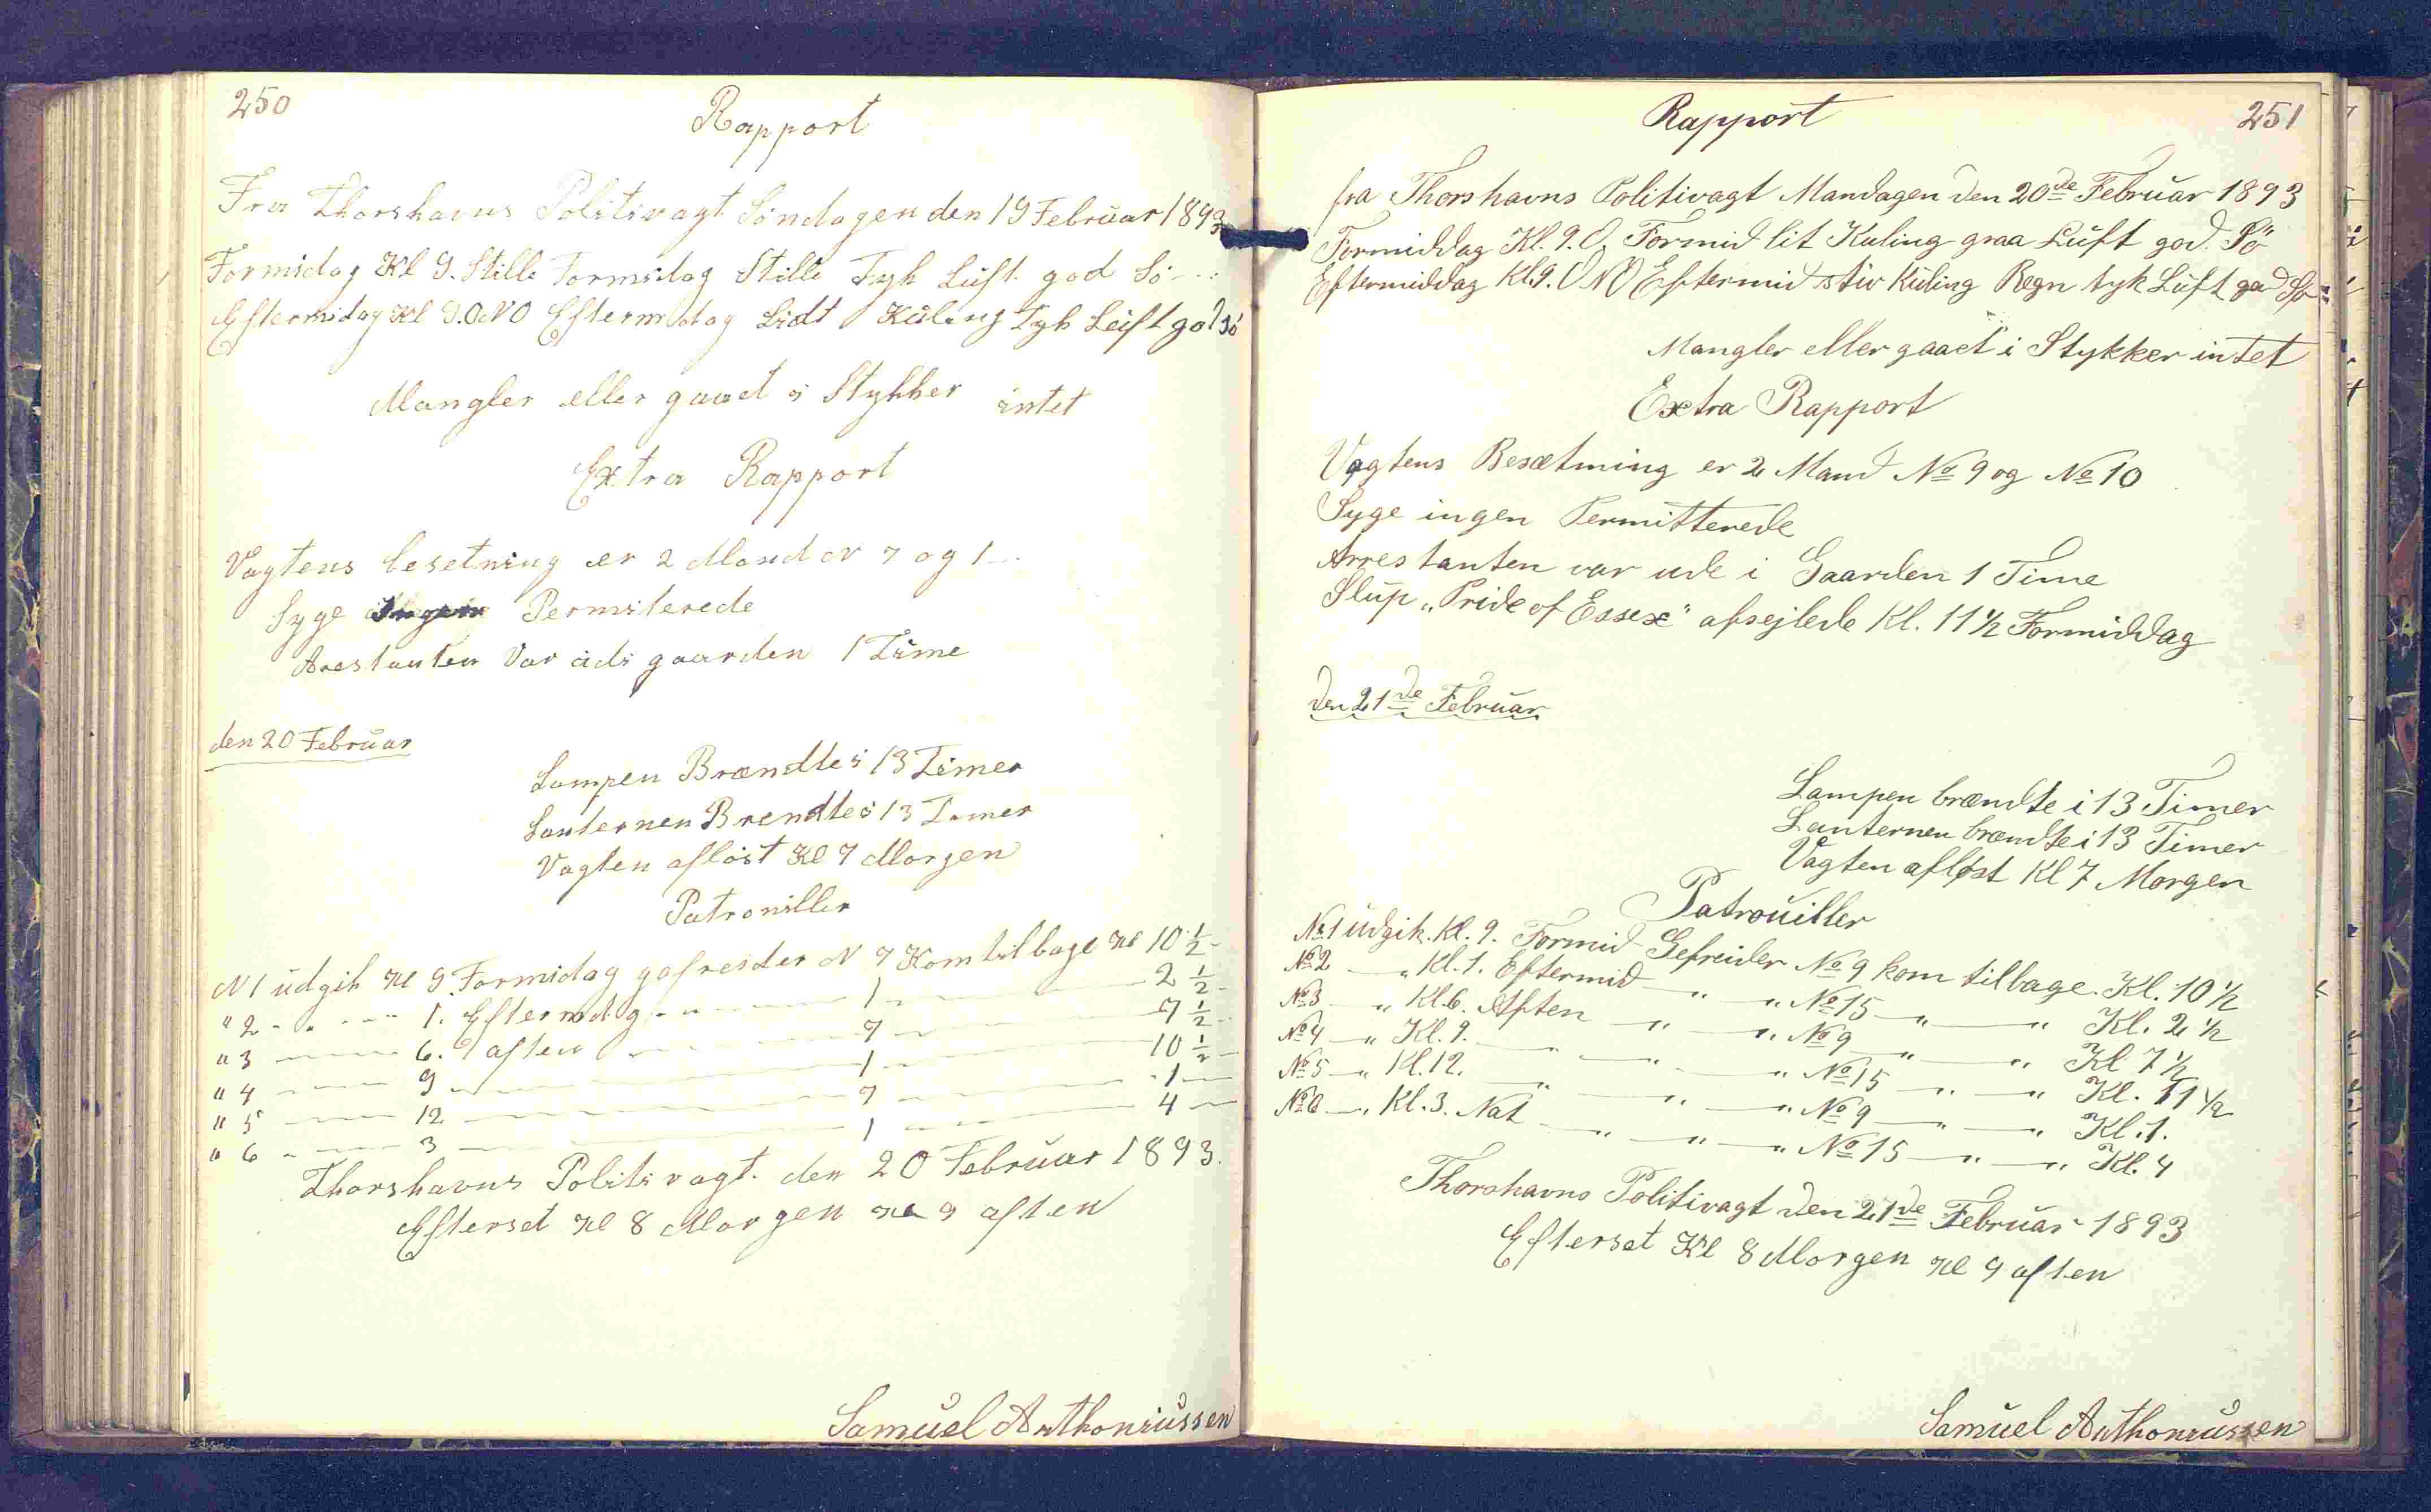 250
Rapport
Fra Thorshavns Politivagt Søndagen den 19 Februar 1893
Formidag Kl 9. Stille Formidag Stille Tyk Luft god Sö
Eftermidag Kl 9. ONO Eftermidag Lidt Kuling Tyk Luft god sö
Mangler eller gaaet i Stykker intet
Extra Rapport
Vagtens besetning er 2 Mand N 7 og 1
Syge Ingen Permiterede
Arestanten Var udi gaarden 1 Time
den 20 Februar
Lampen Brændte i 13 Timer
Lanternen Brendte i 13 Timer
Vagten aflöst Kl 7 Morgen
Patroniller
N 1 udgik Kl 9. Formidag gefreider N 7 Kom tilbage Kl 10 1/2
" 2 - " - - 1. Eftermidag - " - 1 - 2 1/2
" 3 - 6. aften - 7 - 7 1/2
" 4 - 9 - 1 - 10 1/2
" 5 - 12 - 7 - 1
" 6 - 3 - 1 - 4
Thorshavns Politivagt. den 20 Februar 1893.
Efterset Kl 8 Morgen Kl 9 aften
Samuel Anthoniussen
Rapport
251
fra Thorshavns Politivagt Mandagen den 20de Februar 1893
Formiddag Kl. 9. O. Formid lit Kuling graa Luft god Sö
Eftermiddag Kl. 9. ONO Eftermid stiv Kuling Regn tyk Luft god Sö
Mangler eller gaaet i Stykker intet
Extra Rapport
Vagtens Besætning er 2 Mand No 9 og No 10
Syge ingen Permitterede
Arrestanten var ude i Gaarden 1 Time
Slup „Pride of Essex" afsejlede Kl. 11 1/2 Formiddag
den 21de Februar
Lampen brændte i 13 Timer
Lanternen brændte i 13 Timer
Vagten afløst Kl 7 Morgen
Patrouiller
No 1 udgik. Kl. 9. Formid Gefreider No 9 kom tilbage. Kl. 10 1/2
No 2 — " Kl. 1. Eftermid — " — " No 15 — " — " Kl. 2 1/2
No 3 — " Kl. 6. Aften — " — " No 9 — " — " Kl 7 1/2
No 4 — " Kl. 9. — " — " — " No 15 — " — " Kl. 11 1/2
No 5 — " Kl. 12. — " — " — " No 9 — " — " Kl. 1.
No 6 — " Kl. 3. Nat — " — " — " No 15 — " — " Kl. 4
Thorshavns Politivagt den 21de Februar 1893
Efterset Kl 8 Morgen Kl 9 aften
Samuel Anthoniussen